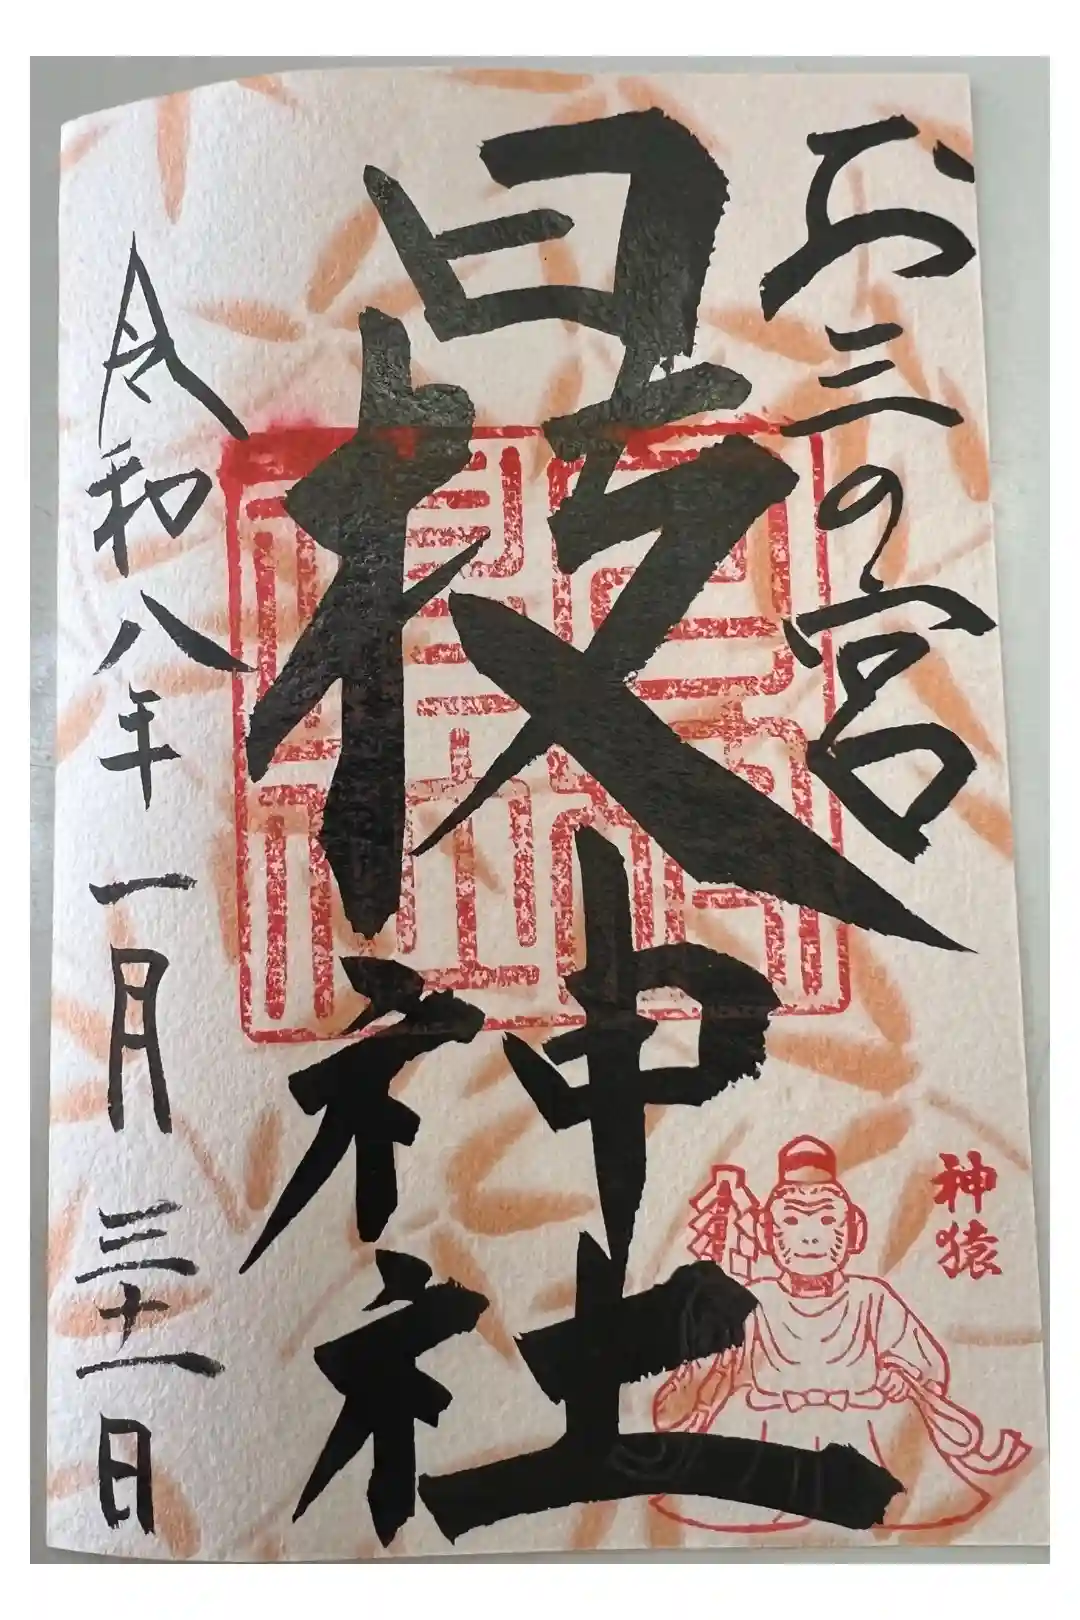 お三の宮
日枝神社
令和八年一月三十一日
神猿